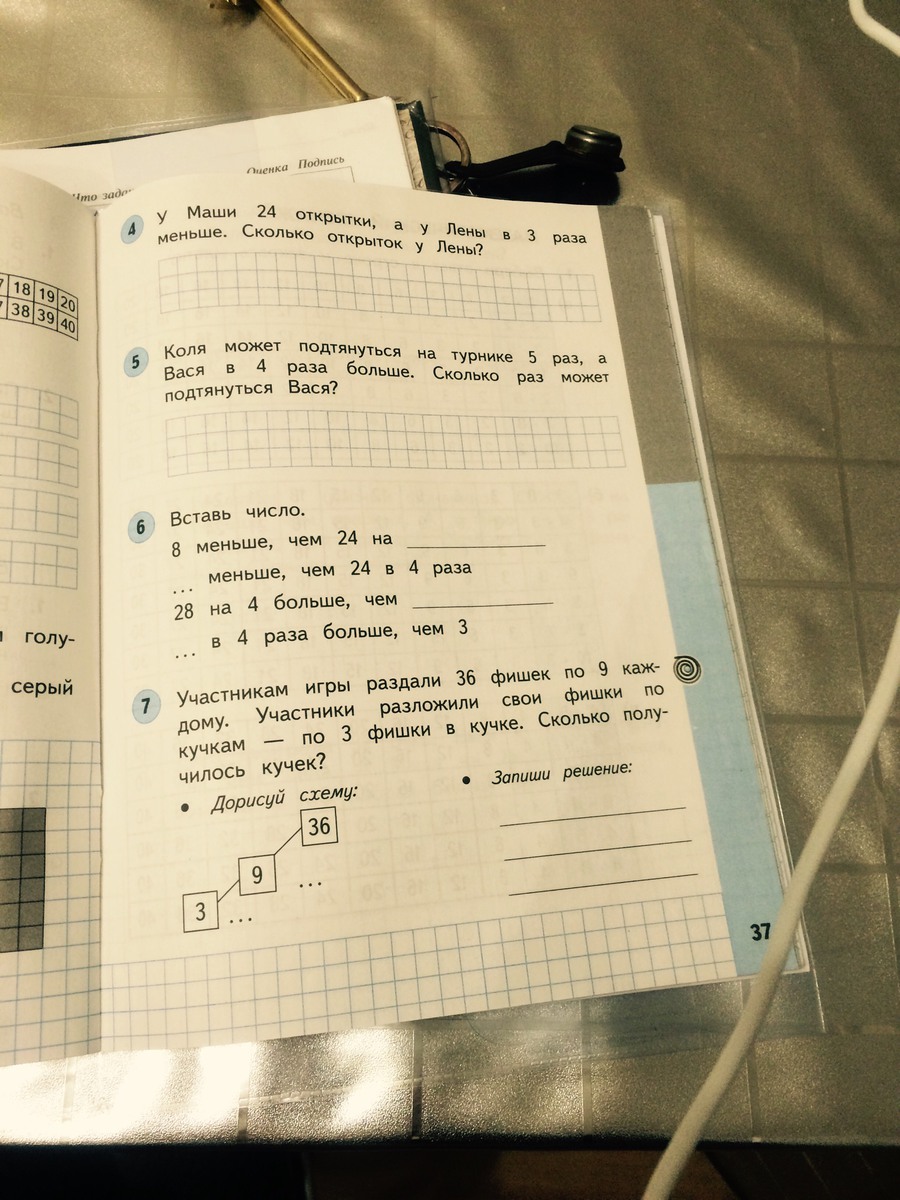 Оценка Подпись
Что
18 19 20
38 39 40
голу-
серый
4 У Маши 24 открытки, а у Лены в 3 раза
меньше. Сколько открыток у Лены?
5 Коля может подтянуться на турнике 5 раз, а
Вася в 4 раза больше. Сколько раз может
подтянуться Вася?
6 Вставь число.
8 меньше, чем 24 на
... меньше, чем 24 в 4 раза
28 на 4 больше, чем
... в 4 раза больше, чем 3
7 Участникам игры раздали 36 фишек по 9 каж-
дому. Участники разложили свои фишки по
кучкам — по 3 фишки в кучке. Сколько полу-
чилось кучек?
• Дорисуй схему:
• Запиши решение:
36
9 ...
3 ...
37